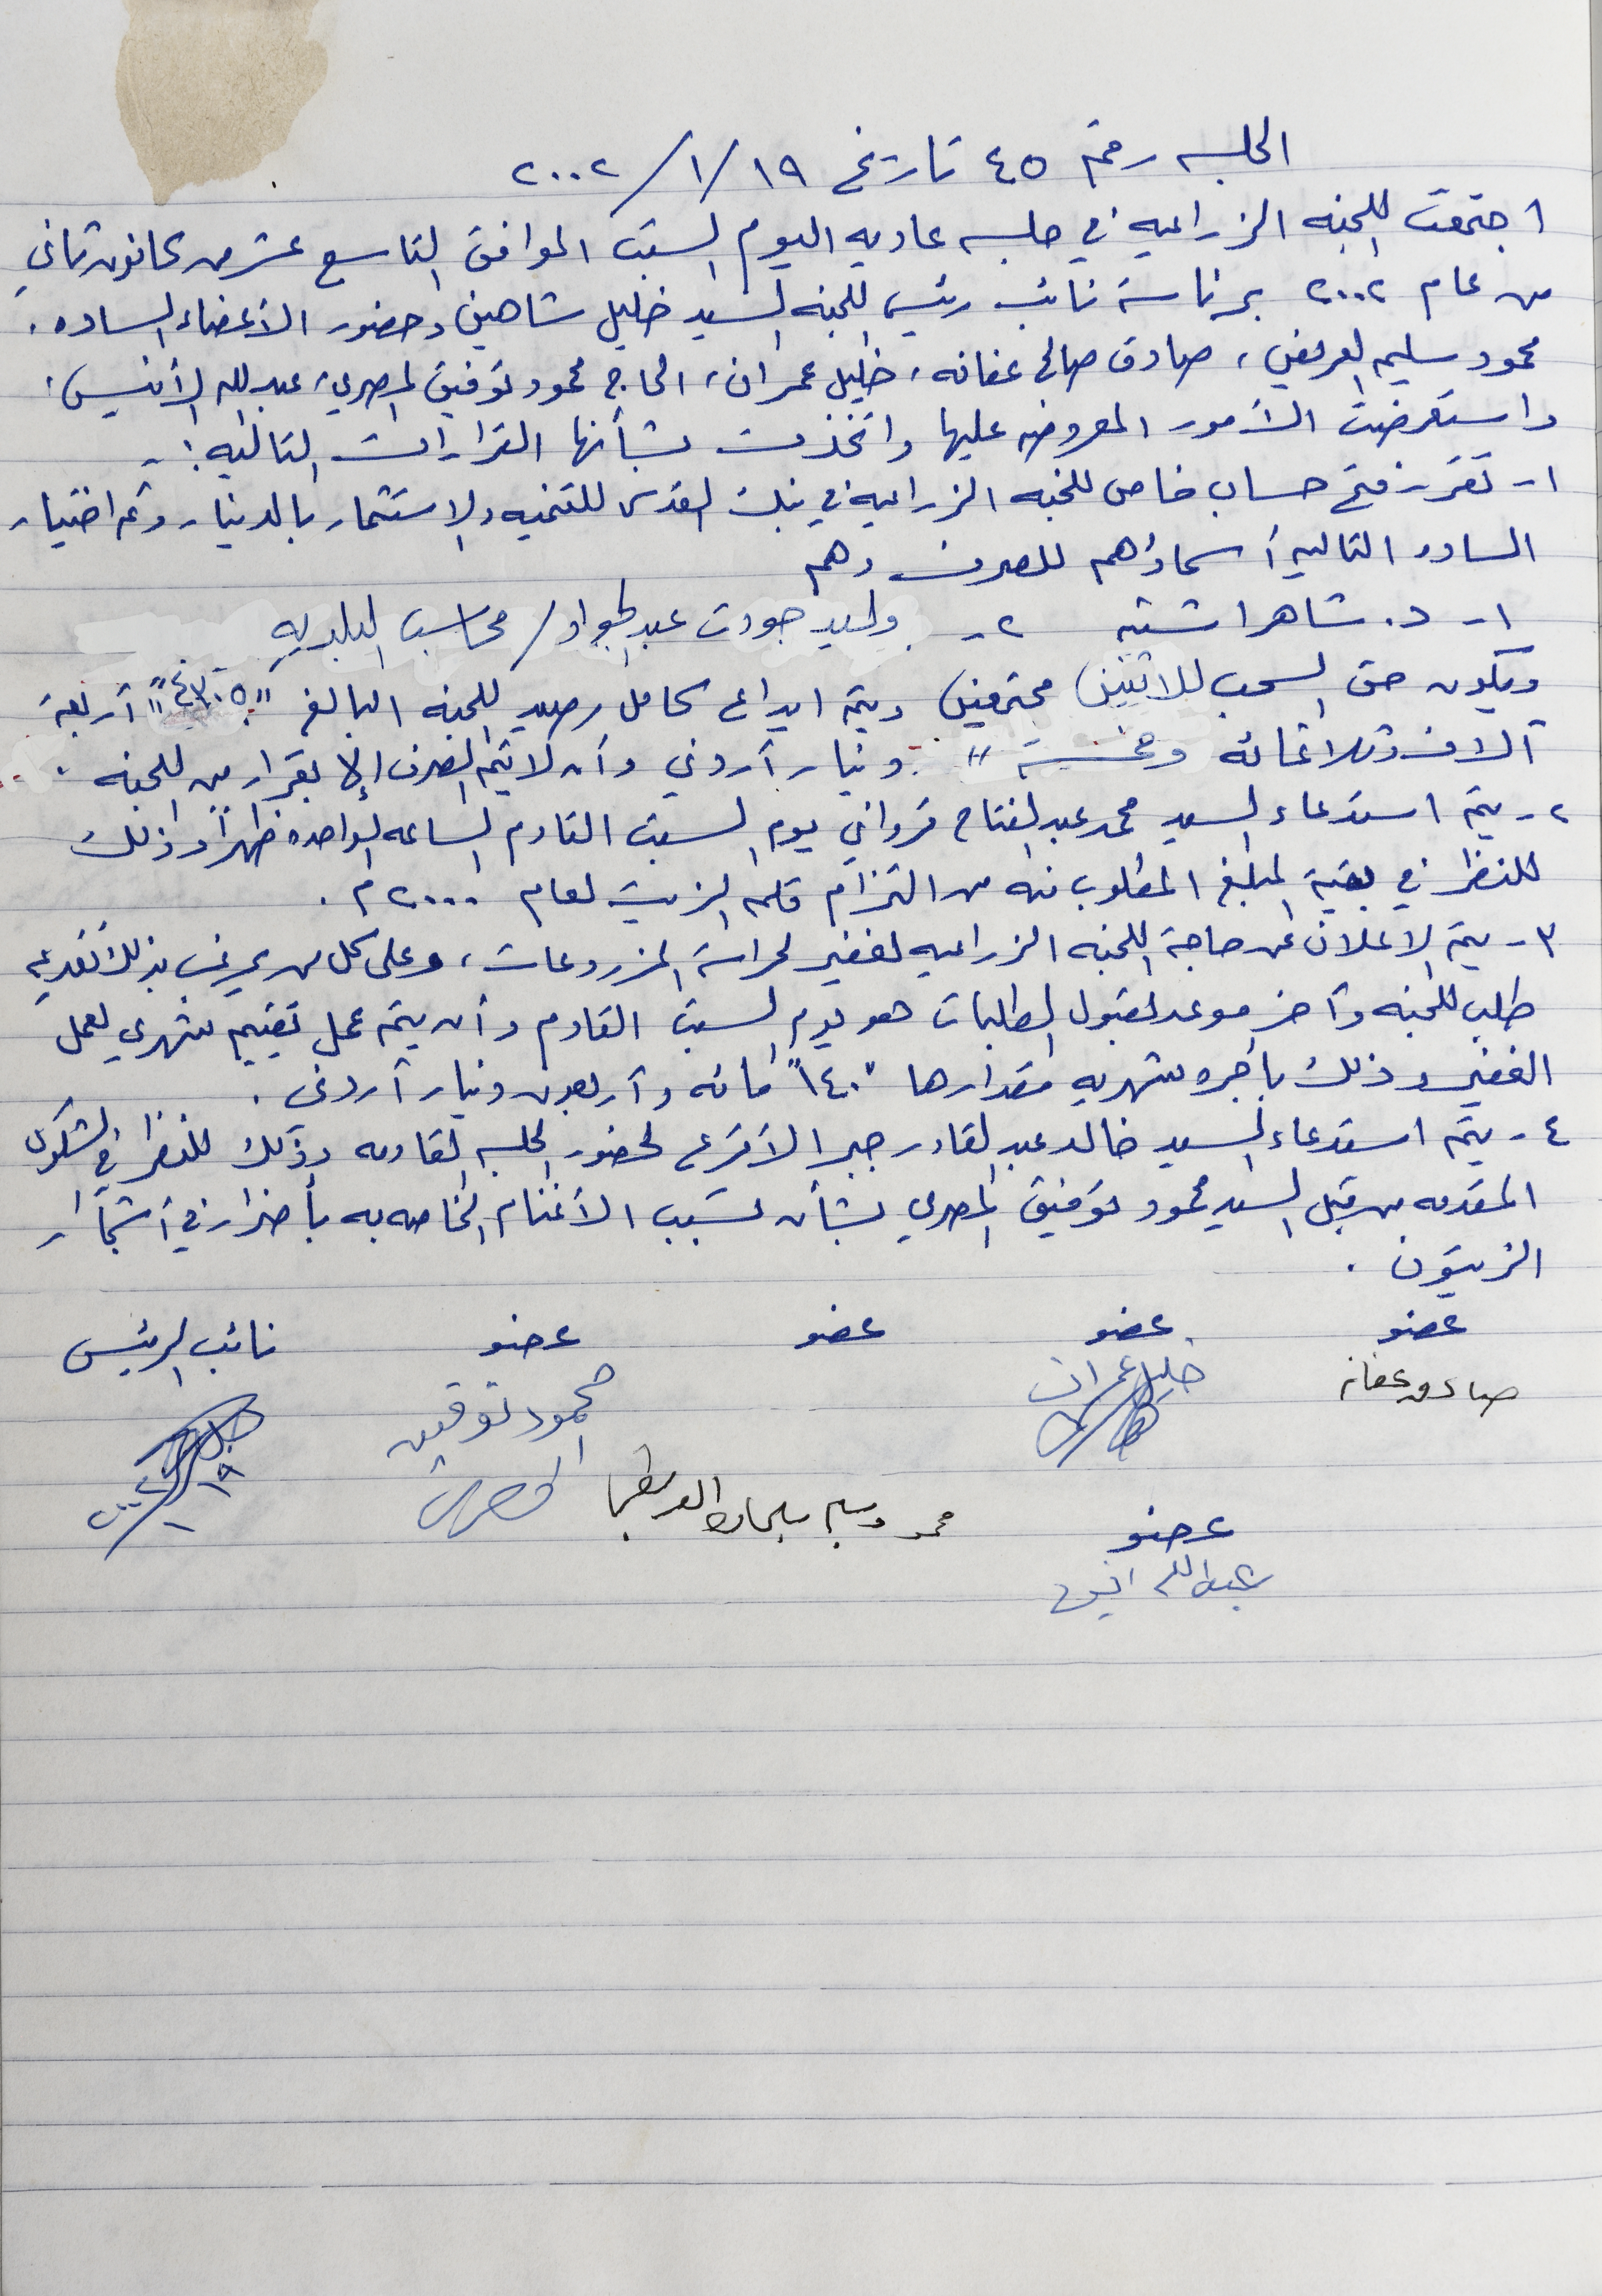 الجلسه رقم ٤٥ تاريخ ١٩/١/٢٠٠٢
اجتمعت اللجنه الزراعيه في جلسه عاديه اليوم السبت الموافق التاسع عشر من كانون ثاني
من عام ٢٠٠٢ برئاسة نائب رئيس اللجنه السيد خليل شاهين وحضور الأعضاء الساده .
محمود سليم العريض ، صادق صالح عفانه ، خليل عمران ، الحاج محمود توفيق المصري ، عبدالله الأنيس ،
واستعرضت الأمور المعروضه عليها واتخذت بشأنها القرارات التاليه :-
١- تقرر فتح حساب خاص للجنه الزراعيه في بنك القدس للتنميه والاستثمار بالدينار وتم اختيار
الساده التاليه أسماؤهم للصرف وهم
١- د. شاهر اشتيه ٢- وليد جودت عبدالجواد / محاسب البلديه
ويكون حق السحب للاثنين مجتمعين ويتم ايداع كامل رصيد اللجنه البالغ "٤٣٠٥" أربعة
آلاف وثلاثمائه وخمسة " دينار أردني وأن لا يتم الصرف إلا بقرار من اللجنه .
٢- يتم استدعاء السيد محمد عبدالفتاح قرواني يوم السبت القادم الساعه الواحده ظهراً وذلك
للنظر في بقية المبلغ المطلوب منه من التزام قلمه الزيت لعام ٢٠٠٠ م .
٣- يتم الاعلان عن حاجة اللجنه الزراعيه لغفير لحراسة المزروعات ، وعلى كل من يرغب بذلك تقديم
طلب للجنه وآخر موعد لقبول الطلبات هو يوم السبت القادم وأن يتم عمل تقييم شهري لعمل
الغفير وذلك بأجره شهريه مقدارها "١٤٠" مائه وأربعون دينار أردني .
٤- يتم استدعاء السيد خالد عبدالقادر جبر الأقرع لحضور الجلسه القادمه وذلك للنظر في الشكوى
المقدمه من قبل السيد محمود توفيق المصري بشأن تسبب الأغنام الخاصه به بأضرار في أشجار
الزيتون .
عضو عضو عضو عضو نائب الرئيس
صادق عفانه خليل عمران محمود توفيق
المصري
محمود سليم سليمان
١٩/١/٢٠٠٢
عضو
عبدالله انيس